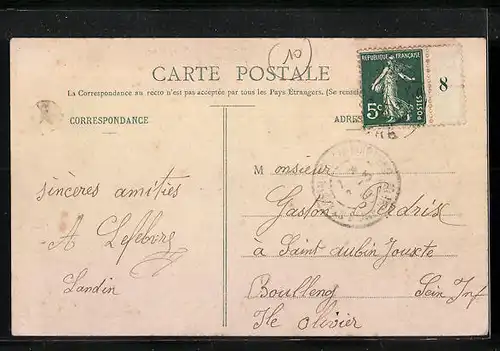 10
RÉPUBLIQUE FRANÇAISE
5c
POSTES
8
CARTE POSTALE
La Correspondance au recto n'est pas acceptée par tous les Pays Étrangers. (Se rensei
CORRESPONDANCE
ADRES
sincères amitiés
A Lefebvre
Landin
Monsieur
Gaston Perdrix
à Saint aubin Jouxte
Boulleng Sein Inf
Ile olivier